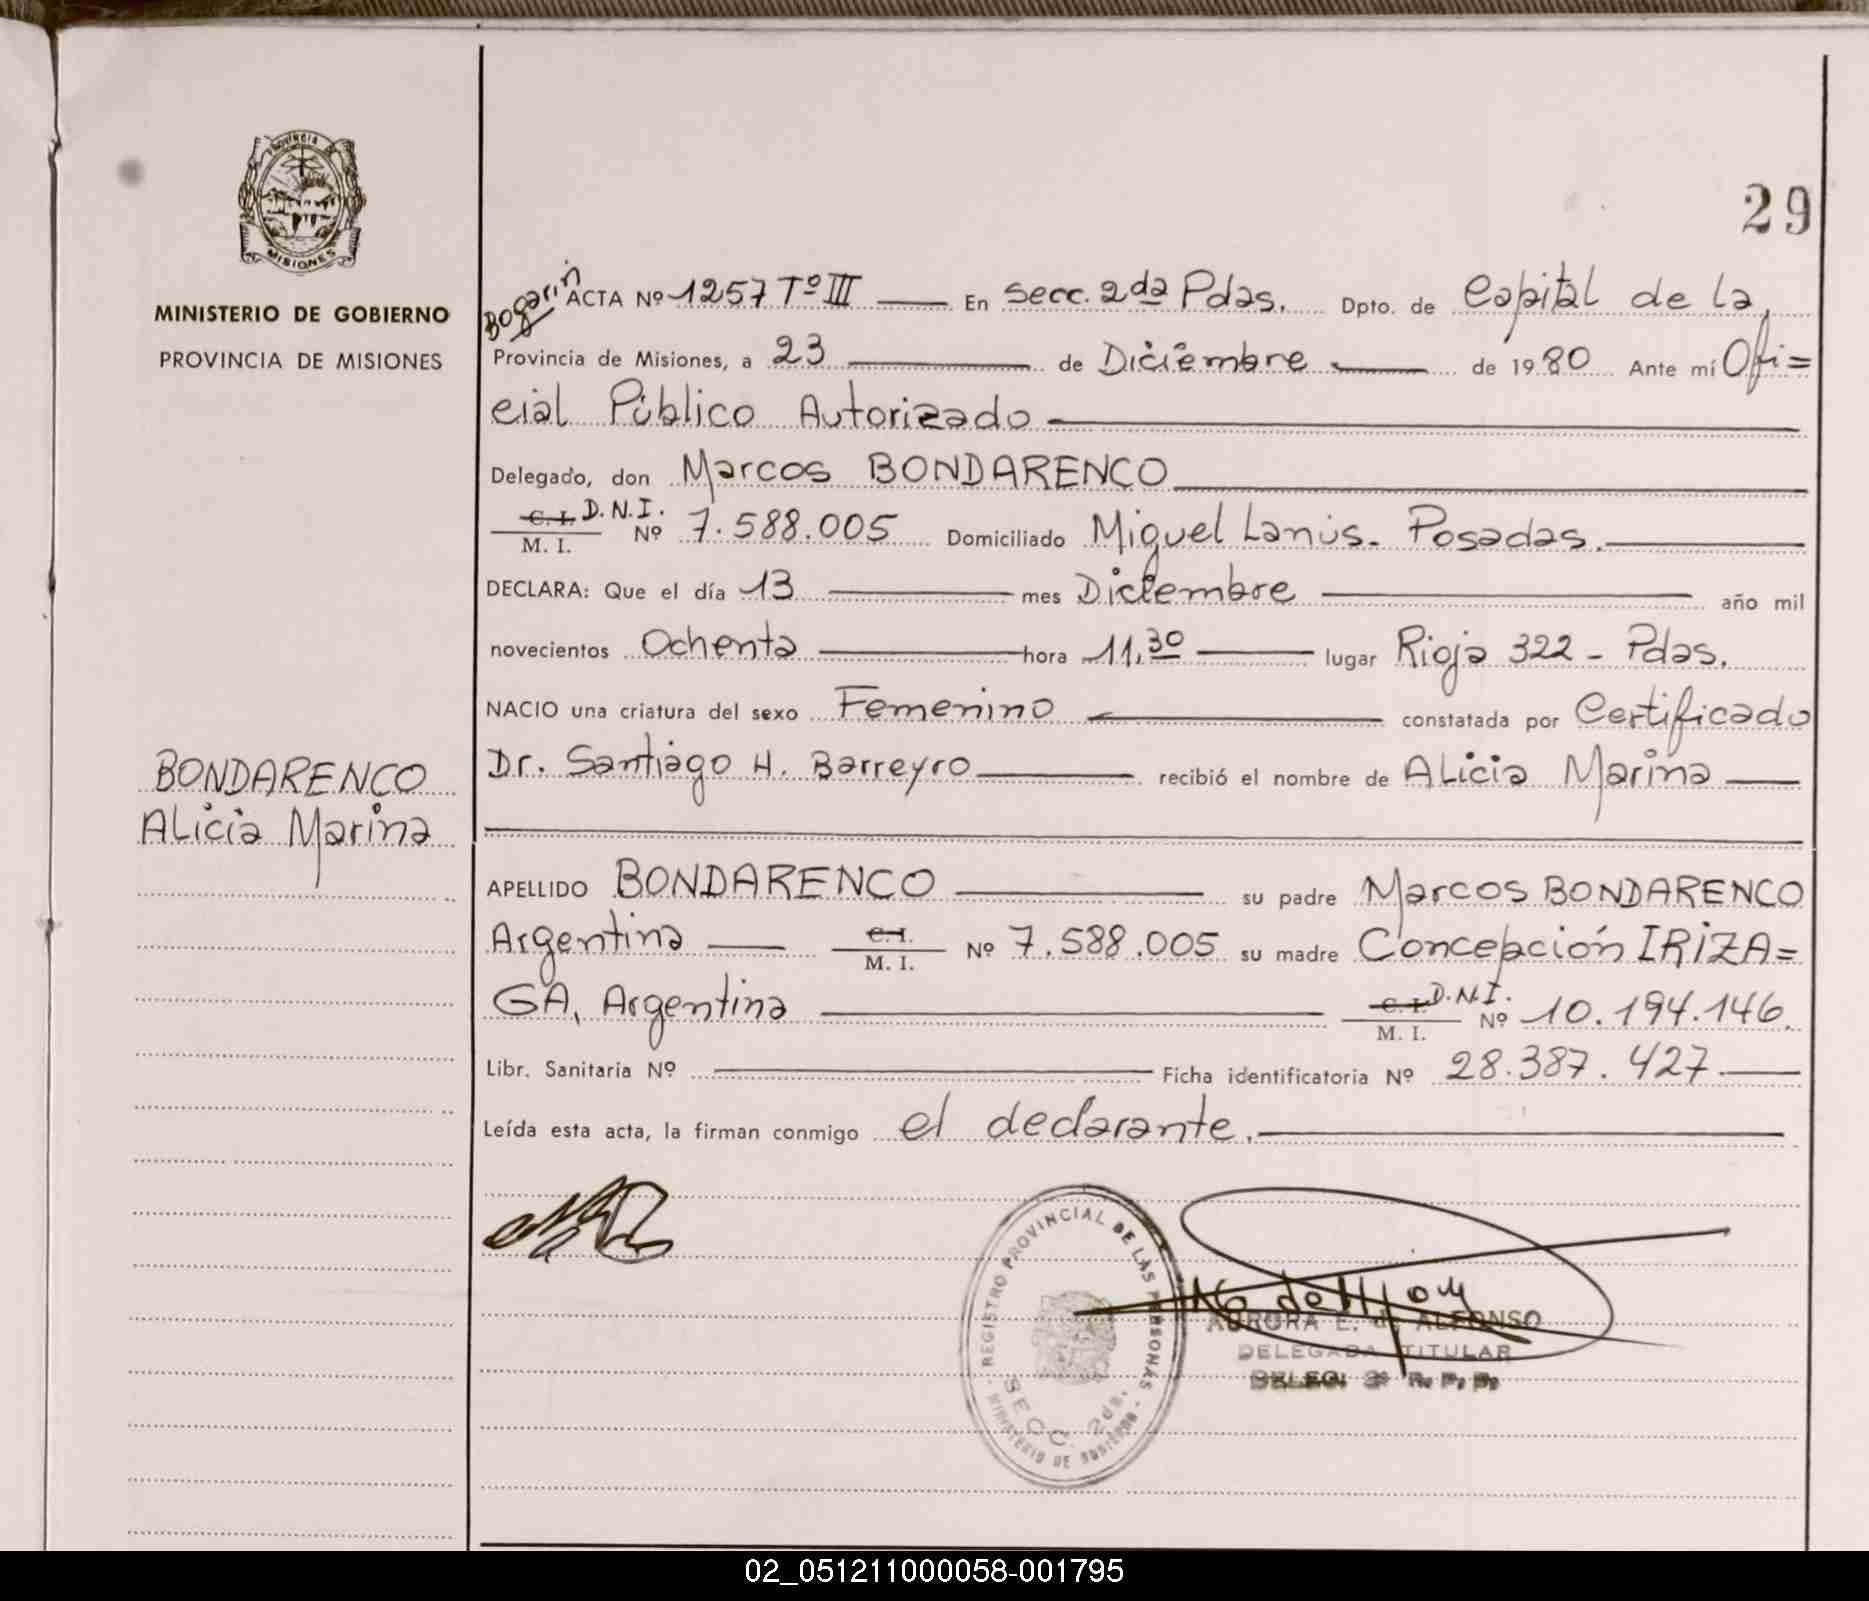 PROVINCIA DE
MISIONES
MINISTERIO DE GOBIERNO
PROVINCIA DE MISIONES
BONDARENCO
Alicia Marina
29
Bogarin
ACTA Nº 1257 Tº III En Secc. 2da Pdas. Dpto. de Capital de la
Provincia de Misiones, a 23 de Diciembre de 1980 Ante mí Ofi=
cial Público Autorizado
Delegado, don Marcos BONDARENCO
C. I. D.N.I.
M. I. Nº 7.588.005 Domiciliado Miguel Lanús. Posadas.
DECLARA: Que el día 13 mes Diciembre año mil
novecientos Ochenta hora 11,30 lugar Rioja 322 - Pdas.
NACIO una criatura del sexo Femenino constatada por Certificado
Dr. Santiago H. Barreyro recibió el nombre de Alicia Marina
APELLIDO BONDARENCO su padre Marcos BONDARENCO
Argentina C. I. M. I. Nº 7.588.005 su madre Concepción IRIZA=
GA, Argentina C. I. D.N.I. M. I. Nº 10.194.146.
Libr. Sanitaria Nº Ficha identificatoria Nº 28.387.427.
Leída esta acta, la firman conmigo el declarante.
REGISTRO PROVINCIAL DE LAS PERSONAS
MINISTERIO DE GOBIERNO
SECC. 2da.
AURORA E. de ALFONSO
DELEGADA TITULAR
DELEG. 2ª R. P. P.
02_051211000058-001795